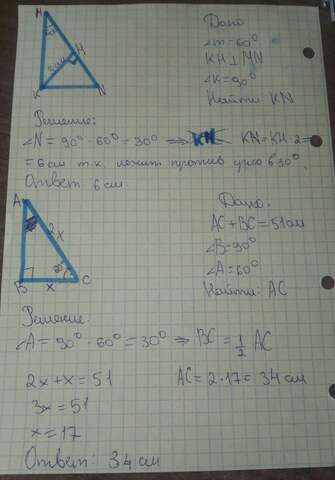 M
60°
H
3 см
K
N
Дано
∠m=60°
KH⊥MN
∠K=90°
Найти: KN
Решение:
∠N = 90°-60°=30° ⇒ KN KN=KH·2=
=6см т.к лежит против угла в 30°.
Ответ 6 см
A
2x
B
x
C
Дано:
AC+BC=51см
∠B=90°
∠A=60°
Найти: AC
Решение
∠A = 90°-60°=30° ⇒ BC = 1/2 AC
2x+x=51
AC=2·17=34 см
3x=51
x=17
Ответ: 34 см